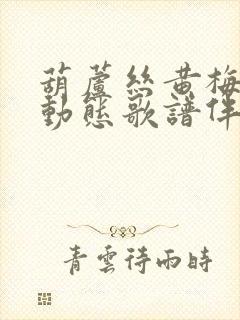 葫蘆絲黄梅
動態歌譜伴
青雲待雨時